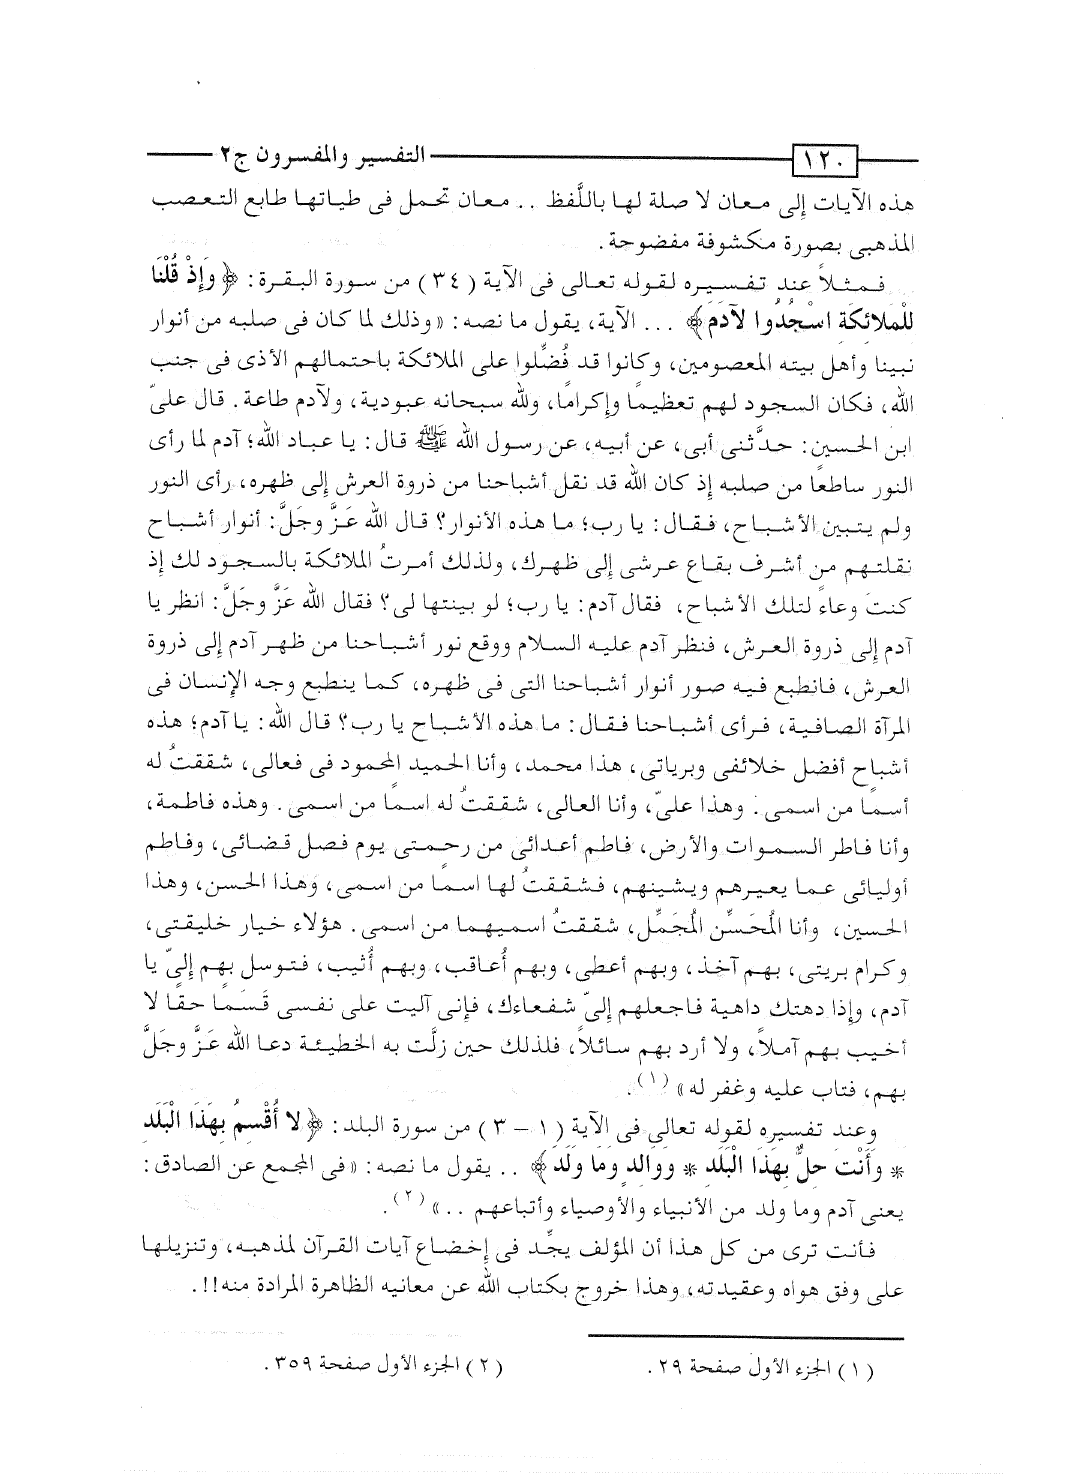 ١٢٠ التفسير والمفسرون ج٢
هذه الآيات إلى معان لا صلة لها باللَّفظ .. معان تحمل فى طياتها طابع التعصب
المذهبى بصورة مكشوفة مفضوحة.
فمثلاً عند تفسيره لقوله تعالى فى الآية (٣٤) من سورة البقرة: ﴿وَإِذْ قُلْنَا
لِلْمَلائِكَةِ اسْجُدُوا لآدَمَ﴾ ... الآية، يقول ما نصه: «وذلك لما كان فى صلبه من أنوار
نبينا وأهل بيته المعصومين، وكانوا قد فُضِّلوا على الملائكة باحتمالهم الأذى فى جنب
الله، فكان السجود لهم تعظيمًا وإكرامًا، ولله سبحانه عبودية، ولآدم طاعة. قال علىّ
ابن الحسين: حدَّثنى أبى، عن أبيه، عن رسول الله ﷺ قال: يا عباد الله؛ آدم لما رأى
النور ساطعًا من صلبه إذ كان الله قد نقل أشباحنا من ذروة العرش إلى ظهره، رأى النور
ولم يتبين الأشباح، فقال: يا رب؛ ما هذه الأنوار؟ قال الله عَزَّ وجَلَّ: أنوار أشباح
نقلتهم من أشرف بقاع عرشى إلى ظهرك، ولذلك أمرتُ الملائكة بالسجود لك إذ
كنتَ وعاءً لتلك الأشباح، فقال آدم: يا رب؛ لو بينتها لى؟ فقال الله عَزَّ وجَلَّ: انظر يا
آدم إلى ذروة العرش، فنظر آدم عليه السلام ووقع نور أشباحنا من ظهر آدم إلى ذروة
العرش، فانطبع فيه صور أنوار أشباحنا التى فى ظهره، كما ينطبع وجه الإنسان فى
المرآة الصافية، فرأى أشباحنا فقال: ما هذه الأشباح يا رب؟ قال الله: يا آدم؛ هذه
أشباح أفضل خلائفى وبرياتى، هذا محمد، وأنا الحميد المحمود فى فعالى، شققتُ له
أسمًا من اسمى. وهذا علىّ، وأنا العالى، شققتُ له اسمًا من اسمى. وهذه فاطمة،
وأنا فاطر السموات والأرض، فاطم أعدائى من رحمتى يوم فصل قضائى، وفاطم
أوليائى عما يعيرهم ويشينهم، فشققتُ لها اسمًا من اسمى، وهذا الحسن، وهذا
الحسين، وأنا المُحَسِّن المُجَمِّل، شققتُ اسميهما من اسمى. هؤلاء خيار خليقتى،
وكرام بريتى، بهم آخذ، وبهم أعطى، وبهم أُعاقب، وبهم أُثيب، فتوسل بهم إلىّ يا
آدم، وإذا دهتك داهية فاجعلهم إلىّ شفعاءك، فإنى آليت على نفسى قَسَمًا حقا لا
أخيب بهم آملاً، ولا أرد بهم سائلاً، فلذلك حين زلَّت به الخطيئة دعا الله عَزَّ وجَلَّ
بهم، فتاب عليه وغفر له» (١).
وعند تفسيره لقوله تعالى فى الآية (١ – ٣) من سورة البلد: ﴿لا أُقْسِمُ بِهَذَا الْبَلَدِ
* وَأَنْتَ حِلٌّ بِهَذَا الْبَلَدِ * وَوَالِدٍ وَمَا وَلَدَ﴾ .. يقول ما نصه: «فى المجمع عن الصادق:
يعنى آدم وما ولد من الأنبياء والأوصياء وأتباعهم ..» (٢).
فأنت ترى من كل هذا أن المؤلف يجِّد فى إخضاع آيات القرآن لمذهبه، وتنزيلها
على وفق هواه وعقيدته، وهذا خروج بكتاب الله عن معانيه الظاهرة المرادة منه!!.
(١) الجزء الأول صفحة ٢٩. (٢) الجزء الأول صفحة ٣٥٩.